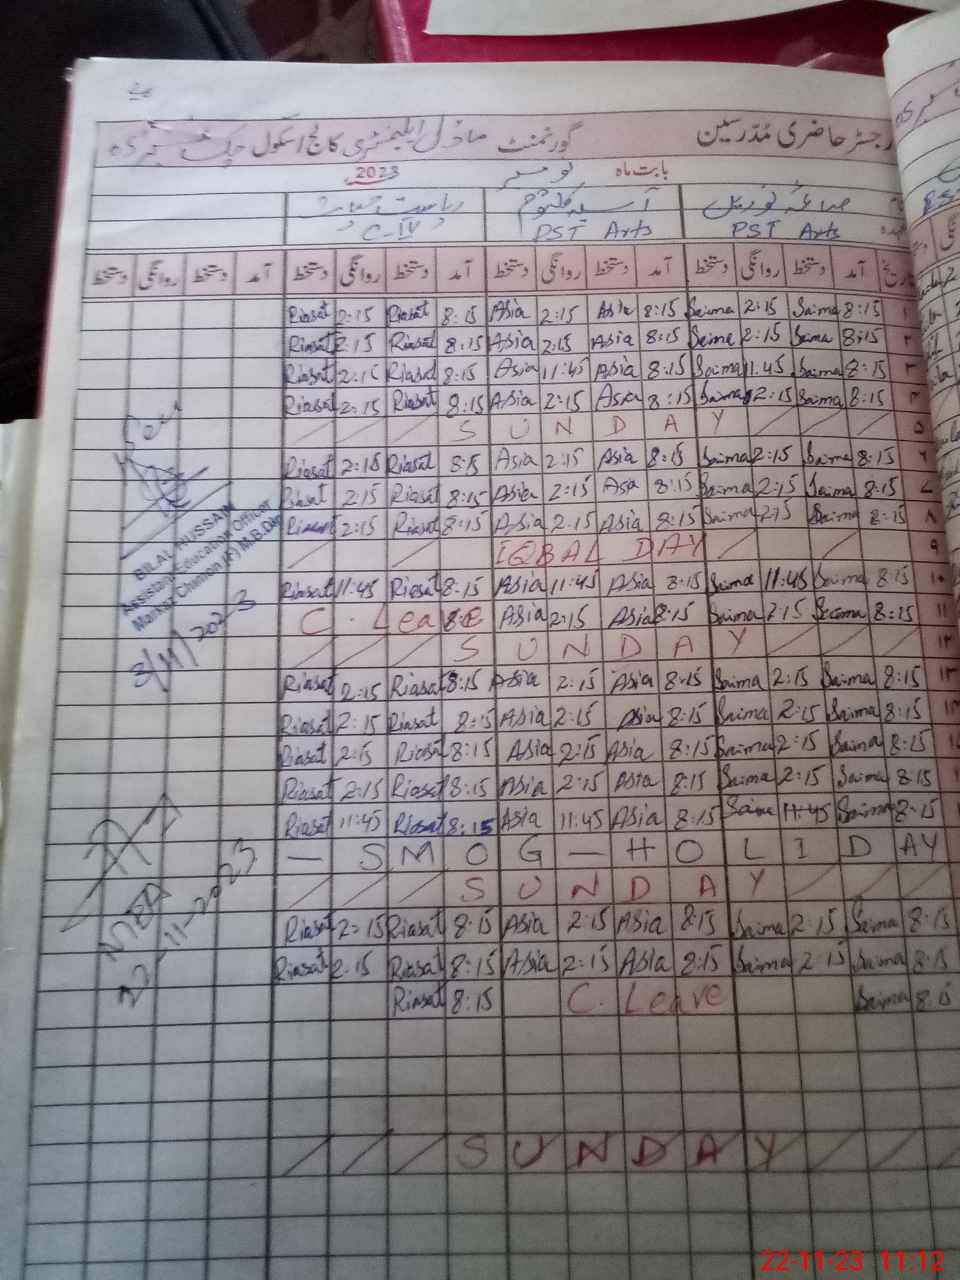 رجسٹر حاضری مدرسین گورنمنٹ ماڈل ایلیمنٹری کالج اسکول چک نمبر
بابت ماہ نومبر 2023
صائمہ آسیہ کلثوم ریاست
PST Arts PST Arts C-IV
تاریخ آمد دستخط روانگی دستخط آمد دستخط روانگی دستخط آمد دستخط روانگی دستخط آمد دستخط روانگی دستخط
Riasat 2:15 Riasat 8:15 Asia 2:15 Asia 8:15 Saima 2:15 Saima 8:15 ۱
Riasat 2:15 Riasat 8:15 Asia 2:15 Asia 8:15 Saima 2:15 Saima 8:15 ۲
Riasat 2:15 Riasat 8:15 Asia 11:45 Asia 8:15 Saima 11:45 Saima 8:15 ۳
Riasat 2:15 Riasat 8:15 Asia 2:15 Asia 8:15 Saima 2:15 Saima 8:15
S U N D A Y ۵
Riasat 2:15 Riasat 8:15 Asia 2:15 Asia 8:15 Saima 2:15 Saima 8:15 ۶
Riasat 2:15 Riasat 8:15 Asia 2:15 Asa 8:15 Saima 2:15 Saima 8:15 ۷
Riasat 2:15 Riasat 8:15 Asia 2:15 Asia 8:15 Saima 2:15 Saima 8:15 ۸
IQBAL DAY ۹
Riasat 11:45 Riasat 8:15 Asia 11:45 Asia 8:15 Saima 11:45 Saima 8:15 ۱۰
C. Leave Asia 2:15 Asia 8:15 Saima 2:15 Saima 8:15 ۱۱
S U N D A Y ۱۲
Riasat 2:15 Riasat 8:15 Asia 2:15 Asia 8:15 Saima 2:15 Saima 8:15 ۱۳
Riasat 2:15 Riasat 8:15 Asia 2:15 Asia 8:15 Saima 2:15 Saima 8:15
Riasat 2:15 Riasat 8:15 Asia 2:15 Asia 8:15 Saima 2:15 Saima 8:15
Riasat 2:15 Riasat 8:15 Asia 2:15 Asia 8:15 Saima 2:15 Saima 8:15
Riasat 11:45 Riasat 8:15 Asia 11:45 Asia 8:15 Saima 11:45 Saima 8:15
— S M O G — H O L I D A Y
S U N D A Y
Riasat 2:15 Riasat 8:15 Asia 2:15 Asia 8:15 Saima 2:15 Saima 8:15
Riasat 2:15 Riasat 8:15 Asia 2:15 Asia 8:15 Saima 2:15 Saima 8:15
Riasat 8:15 C. Leave Saima 8:15
S U N D A Y
BILAL HUSSAIN
Assistant Education Officer
Markaz Chimon (F) M.B.Din
8/11/2023
11-2023
22-11-23 11:12